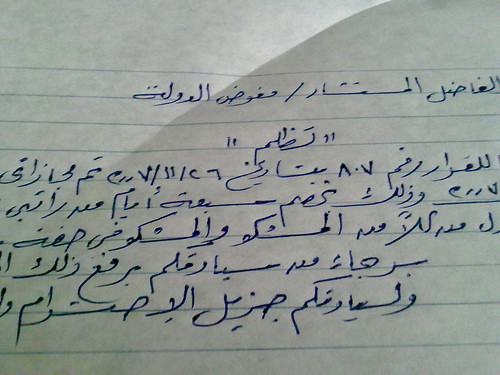 الفاضل المستشار / مفوض الدولة
" تظلم "
للقرار رقم ٨٠٧ بتاريخ ٢٠٠٧/١١/٢٦ تم مجازاتى
٢٠٠٧ وذلك بخصم سبعة أيام من راتبى
من كلاً من المشكو والمشكو فى حقه
برجاء من سيادتكم برفع ذلك
ولسيادتكم جزيل الإحترام